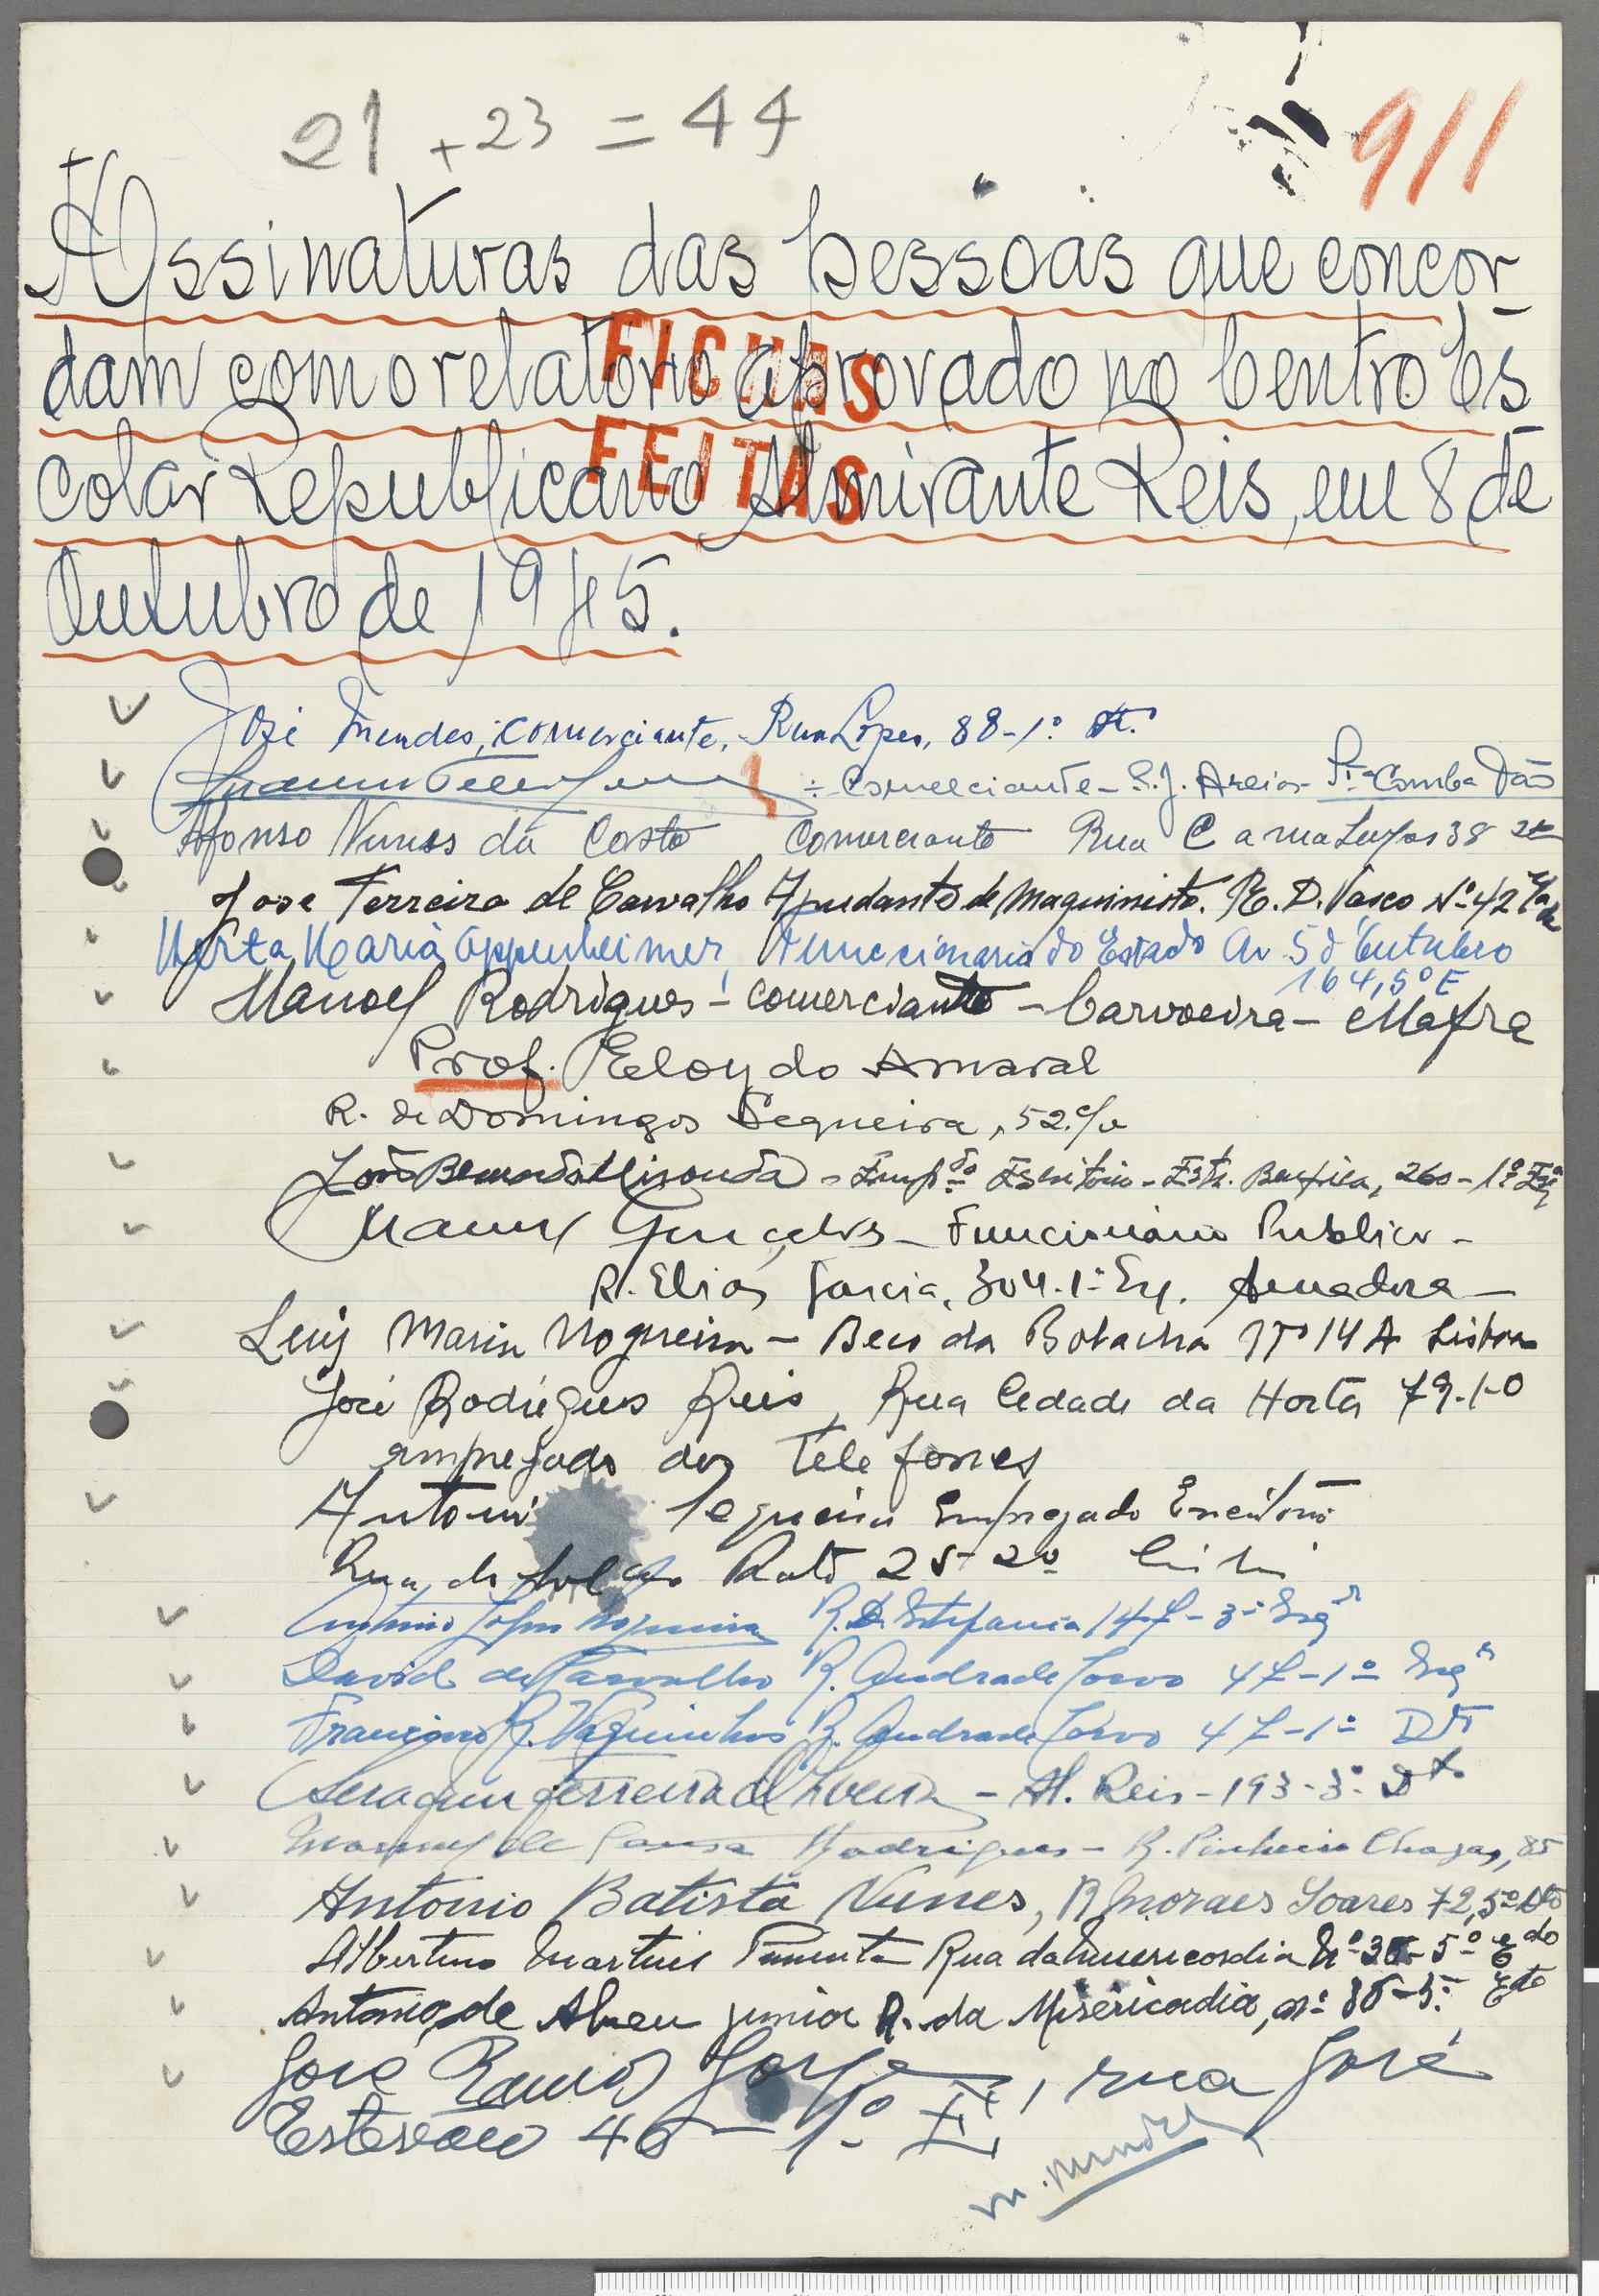 21 + 23 = 44
911
Assinaturas das pessoas que concor-
dam com o relatorio aprovado no Centro Es
FICHAS
colar Republicano Almirante Reis, em 8 de
FEITAS
Outubro de 1945.
José Mendes, comerciante, Rua Lopes, 88-1º
Comerciante - S. J. Areias - Sta Comba Dão
Afonso Nunes da Costa Comerciante Rua 38
Jose Ferreira de Carvalho Ajudante de Maquinista. R. D. Vasco Nº 42
Herta Maria Oppenheimer, Funccionaria do Estado Av 5 d'Outubro
164, 5º E
Manoel Rodrigues - comerciante - Carvoeira - Mafra
Prof. Eloy do Amaral
R. de Domingos Sequeira, 52
Escritório - Estr. Benfica, 260 - 1º
Manuel Gonçalves - Funcionário Publico -
R. Elias Garcia, 304. 1º Eq. Amadora -
Luiz Maria Nogueira - Beco da Bolacha Nº 14 A Lisboa
José Rodrigues Reis, Rua Cidade da Horta 79. 1-0
empregado dos telefones
Empregado Escritorio
Rua do Sol ao Rato 25 2º
R. D. Estefania 147 - 3º Esqº
David de Carvalho R. Andrade Corvo 47 - 1º Esqº
R. Andrade Corvo 47 - 1º Dto
Ferreira - Al. Reis - 193 - 3º Dto
Manuel de Sousa Rodrigues - R. Pinheiro Chagas, 85
Antonio Batista Nunes, R Moraes Soares 72, 5º Dto
Albertino Martins Pimenta Rua da Misericordia Nº 5º
Antonio de Abreu junior R. da Misericadia, nº
José Ramos Jorge, rua José
Estevão 46 - 1º
M. Mendes